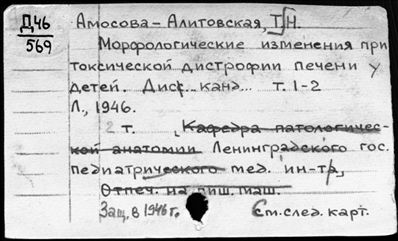 Д46
569
Амосова-Алитовская, Т.Н.
Морфологические изменения при
токсической дистрофии печени у
детей. Дисс. канд... т. 1-2
Л., 1946.
2 т. Кафедра патологичес-
кой анатомии Ленинградского гос.
педиатрического мед. ин-та
Отпеч. на пиш. маш.
Защ. в 1946 г. См. след. карт.